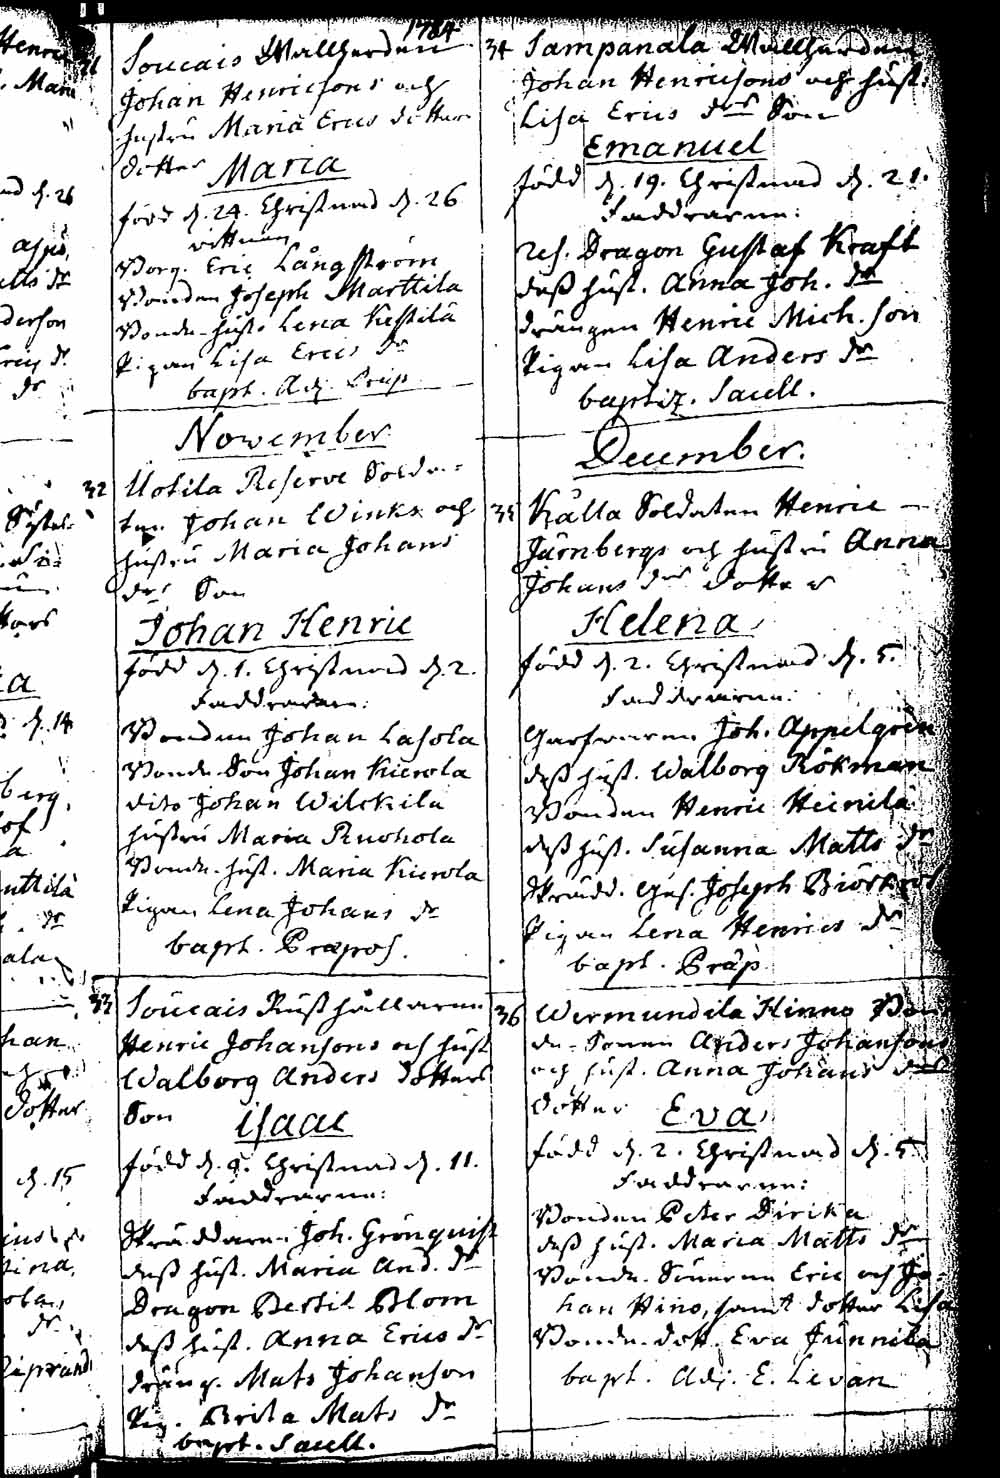 1784
31 Soucais Wallherden
Johan Henricsons och
hustru Maria Erics dotters
dotter Maria
född d. 24. Christnad d. 26
vittnen
Borg. Eric Långström
Bonden Joseph Marttila
Bonde-hust. Lena Kestilä
Pigan Lisa Erics dr
bapt. Adj. Präp
November
32 Uotila Reserve Solda-
ten Johan Winkx och
hustru Maria Johans
drs Son
Johan Henric
född d. 1. Christnad d. 2.
Faddrarne:
Bonden Johan Lasola
Bonde Son Johan Kierola
dito Johan Wilckila
hustru Maria Ruohola
Bonde-hust. Maria Kierola
Pigan Lena Johans dr
bapt. Præpos.
33 Soucais Rusthållaren
Henric Johansons och hust
Walborg Anders dotters
Son Isaac
född d. 9. Christnad d. 11.
Faddrarne:
Skräddaren Joh. Grönquist
dess hust. Maria And. dr
Dragon Bertil Blom
dess hust. Anna Erics dr
dräng. Mats Johanson
Pig. Brita Mats dr
bapt. Sacell.
34 Sampanala Wallherden
Johan Henricsons och hust:
Lisa Erics drs Son
Emanuel
född d. 19. Christnad d. 21.
Faddrarne:
res. Dragon Gustaf Kraft
dess hust. Anna Joh. dr
drängen Henric Mich. son
Pigan Lisa Anders dr
baptiz. Sacell.
December.
35 Källa Soldaten Henric
Järnbergs och hustru Anna
Johans drs dotter
Helena
född d. 2. Christnad d. 5.
Faddrarne:
Garfvaren Joh. Appelgren
dess hust. Walborg Rökman
Bonden Henric Heinilä
dess hust. Susanna Matts dr
Skrädd. Ges. Joseph Biörkqvi
Pigan Lena Henrics dr
bapt. Präp
36 Wermundila Hinno Bon
de-Sonen Anders Johansons
och hust. Anna Johans drs
dotter Eva
född d. 2. Christnad d. 5
Faddrarne:
Bonden Peter Dirika
dess hust. Maria Matts dr
Bonde-Sönerne Eric och Jo-
han Hino, samt dotter Lisa
Bonde-dott. Eva Junnila
bapt. Adj. E. Levan